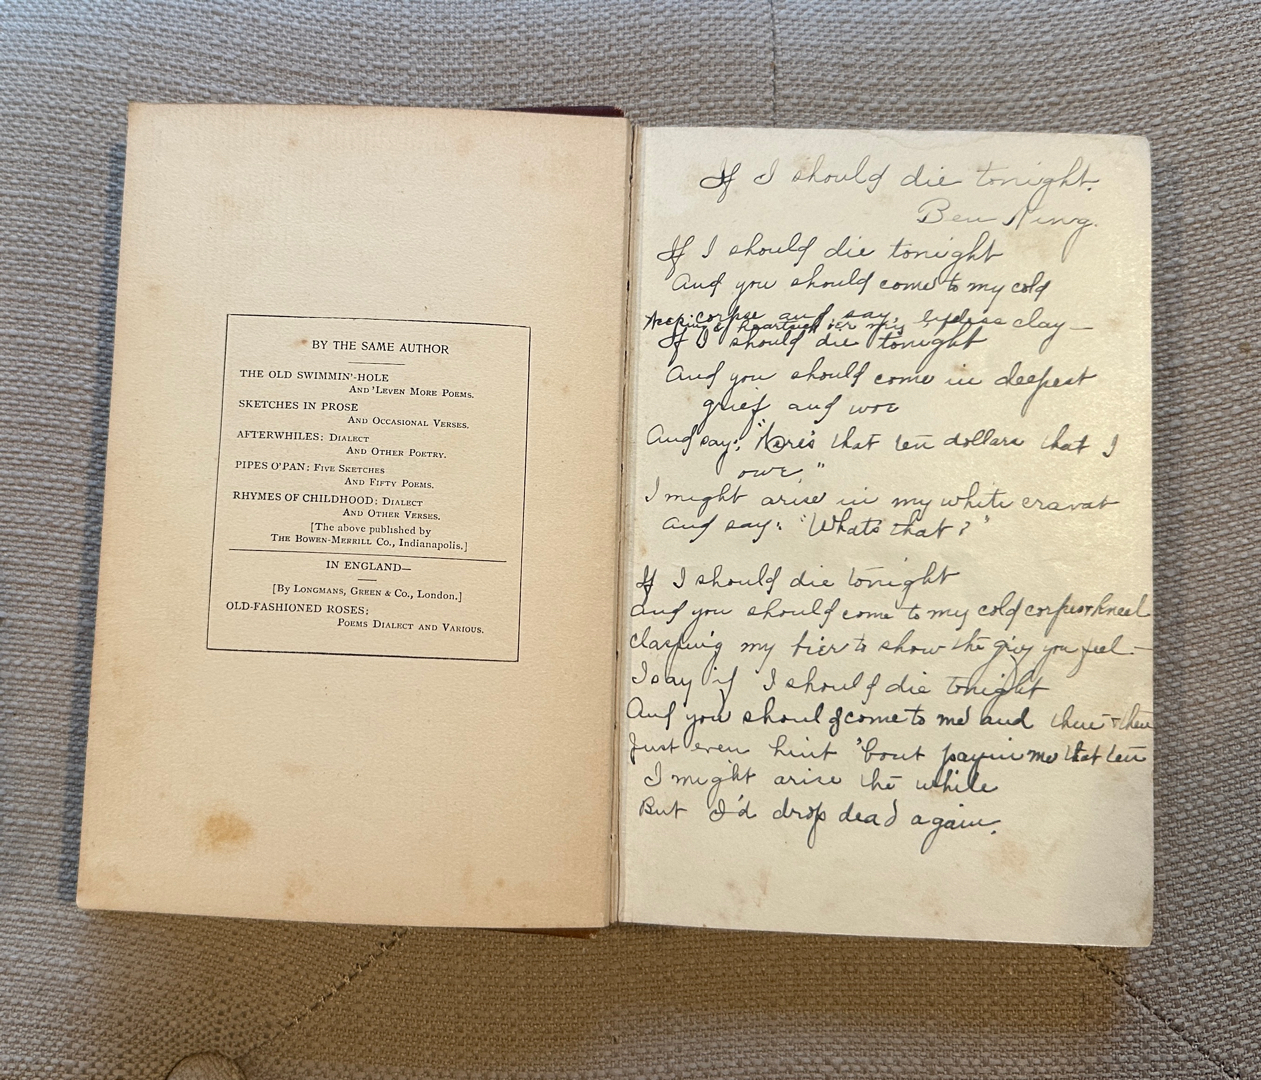 BY THE SAME AUTHOR
THE OLD SWIMMIN'-HOLE
AND 'LEVEN MORE POEMS.
SKETCHES IN PROSE
AND OCCASIONAL VERSES.
AFTERWHILES: DIALECT
AND OTHER POETRY.
PIPES O'PAN: FIVE SKETCHES
AND FIFTY POEMS.
RHYMES OF CHILDHOOD: DIALECT
AND OTHER VERSES.
[The above published by
THE BOWEN-MERRILL CO., Indianapolis.]
IN ENGLAND—
[By LONGMANS, GREEN & Co., London.]
OLD-FASHIONED ROSES;
POEMS DIALECT AND VARIOUS.
If I should die tonight.
Ben King.
If I should die tonight
And you should come to my cold
corpse and say,
Weeping & heartsick o'er my lifeless clay —
If I should die tonight
And you should come in deepest
grief and woe
And say: "Here's that ten dollars that I
owe,"
I might arise in my white cravat
and say: "Whats that?"
If I should die tonight
and you should come to my cold corpse & kneel
clasping my bier to show the grief you feel. —
I say if I should die tonight
And you should come to me and there & then
Just even hint 'bout payin me that ten
I might arise the while
But I'd drop dead again.